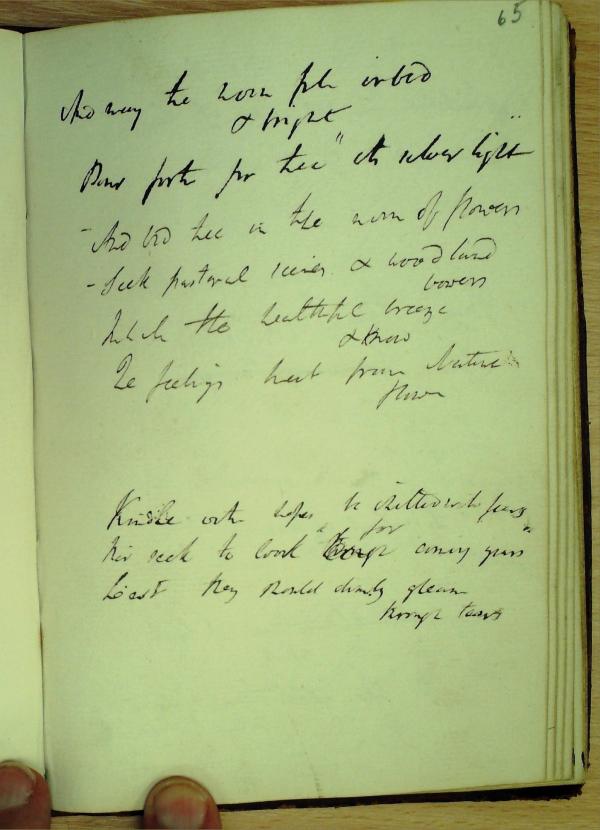 65
And may the moon full orbed
& bright
Pour forth for thee "its silver light"
- And bid thee in the noon of flowers
- Seek pastoral scenes & woodland
bowers
Inhale the healthful breeze
& know
The feelings that from Nature
flow
Kindle with hopes be chilled with fears
Nor seek to look through for coming years"
Least they should dimly gleam
through tears